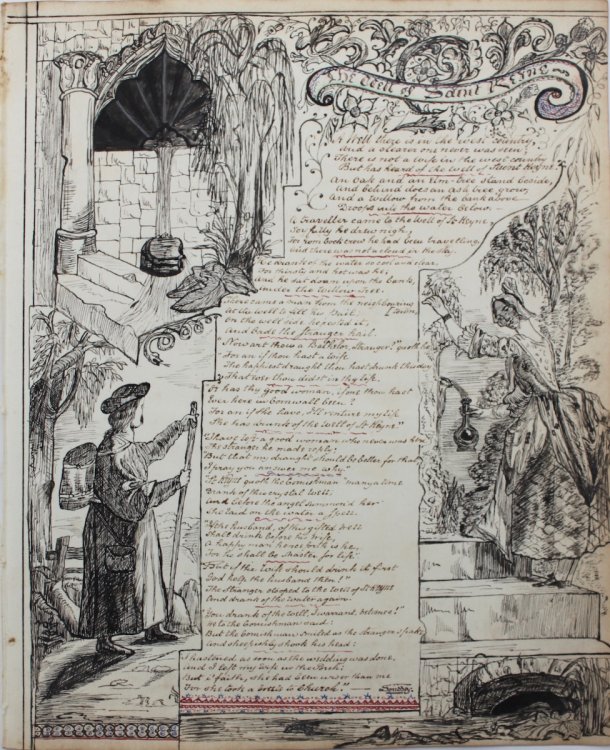 The Well of Saint Keyne
A Well there is in the west country,
And a clearer one never was seen;
There is not a wife in the west country
But has heard of the Well of Saint Keyne.
An oak and an elm-tree stand beside,
And behind does an ash tree grow,
And a willow from the bank above
Droops into the water below.
A traveller came to the Well of St Keyne,
Joyfully he drew nigh,
For from Cock crow he had been travelling,
And there was not a cloud in the sky.
He drank of the water so cool and clear,
For thirsty and hot was he;
And he sat down upon the bank,
Under the Willow tree.
There came a man from the neighbouring
[Town,
At the Well to fill his Pail;
On the well-side he rested it,
And bade the Stranger hail.
"Now art thou a Bachelor, Stranger?" quoth he,
"For an if thou hast a wife,
The happiest draught thou hast drunk this day
That ever thou didst in thy life.
Or has thy good woman, if one thou hast,
Ever here in Cornwall been?
For an if she have, I'll venture my life
She has drunk of the Well of St Keyne."
"I have left a good woman who never was here"
The stranger he made reply;
"But that my draught should be better for that,
I pray you answer me why."
"St Keyne" quoth the Cornishman "many a time
Drank of this crystal well;
And before the angel summon'd her
She laid on the water a spell.
"If the husband, of this gifted Well
Shall drink before his wife,
A happy man henceforth is he,
For he shall be Master for life."
"But if the wife should drink it first
God help the husband then!"
The Stranger stooped to the Well of St Keyne
And drank of the water again.
"You drank of the Well, I warrant, betimes?"
He to the Cornishman said:
But the Cornishman smiled as the stranger spake,
And sheepishly shook his head:
"I hastened, as soon as the wedding was done,
And I left my wife in the Porch;
But i' faith, she had been wiser than me
For she took a bottle to Church."
Southey.